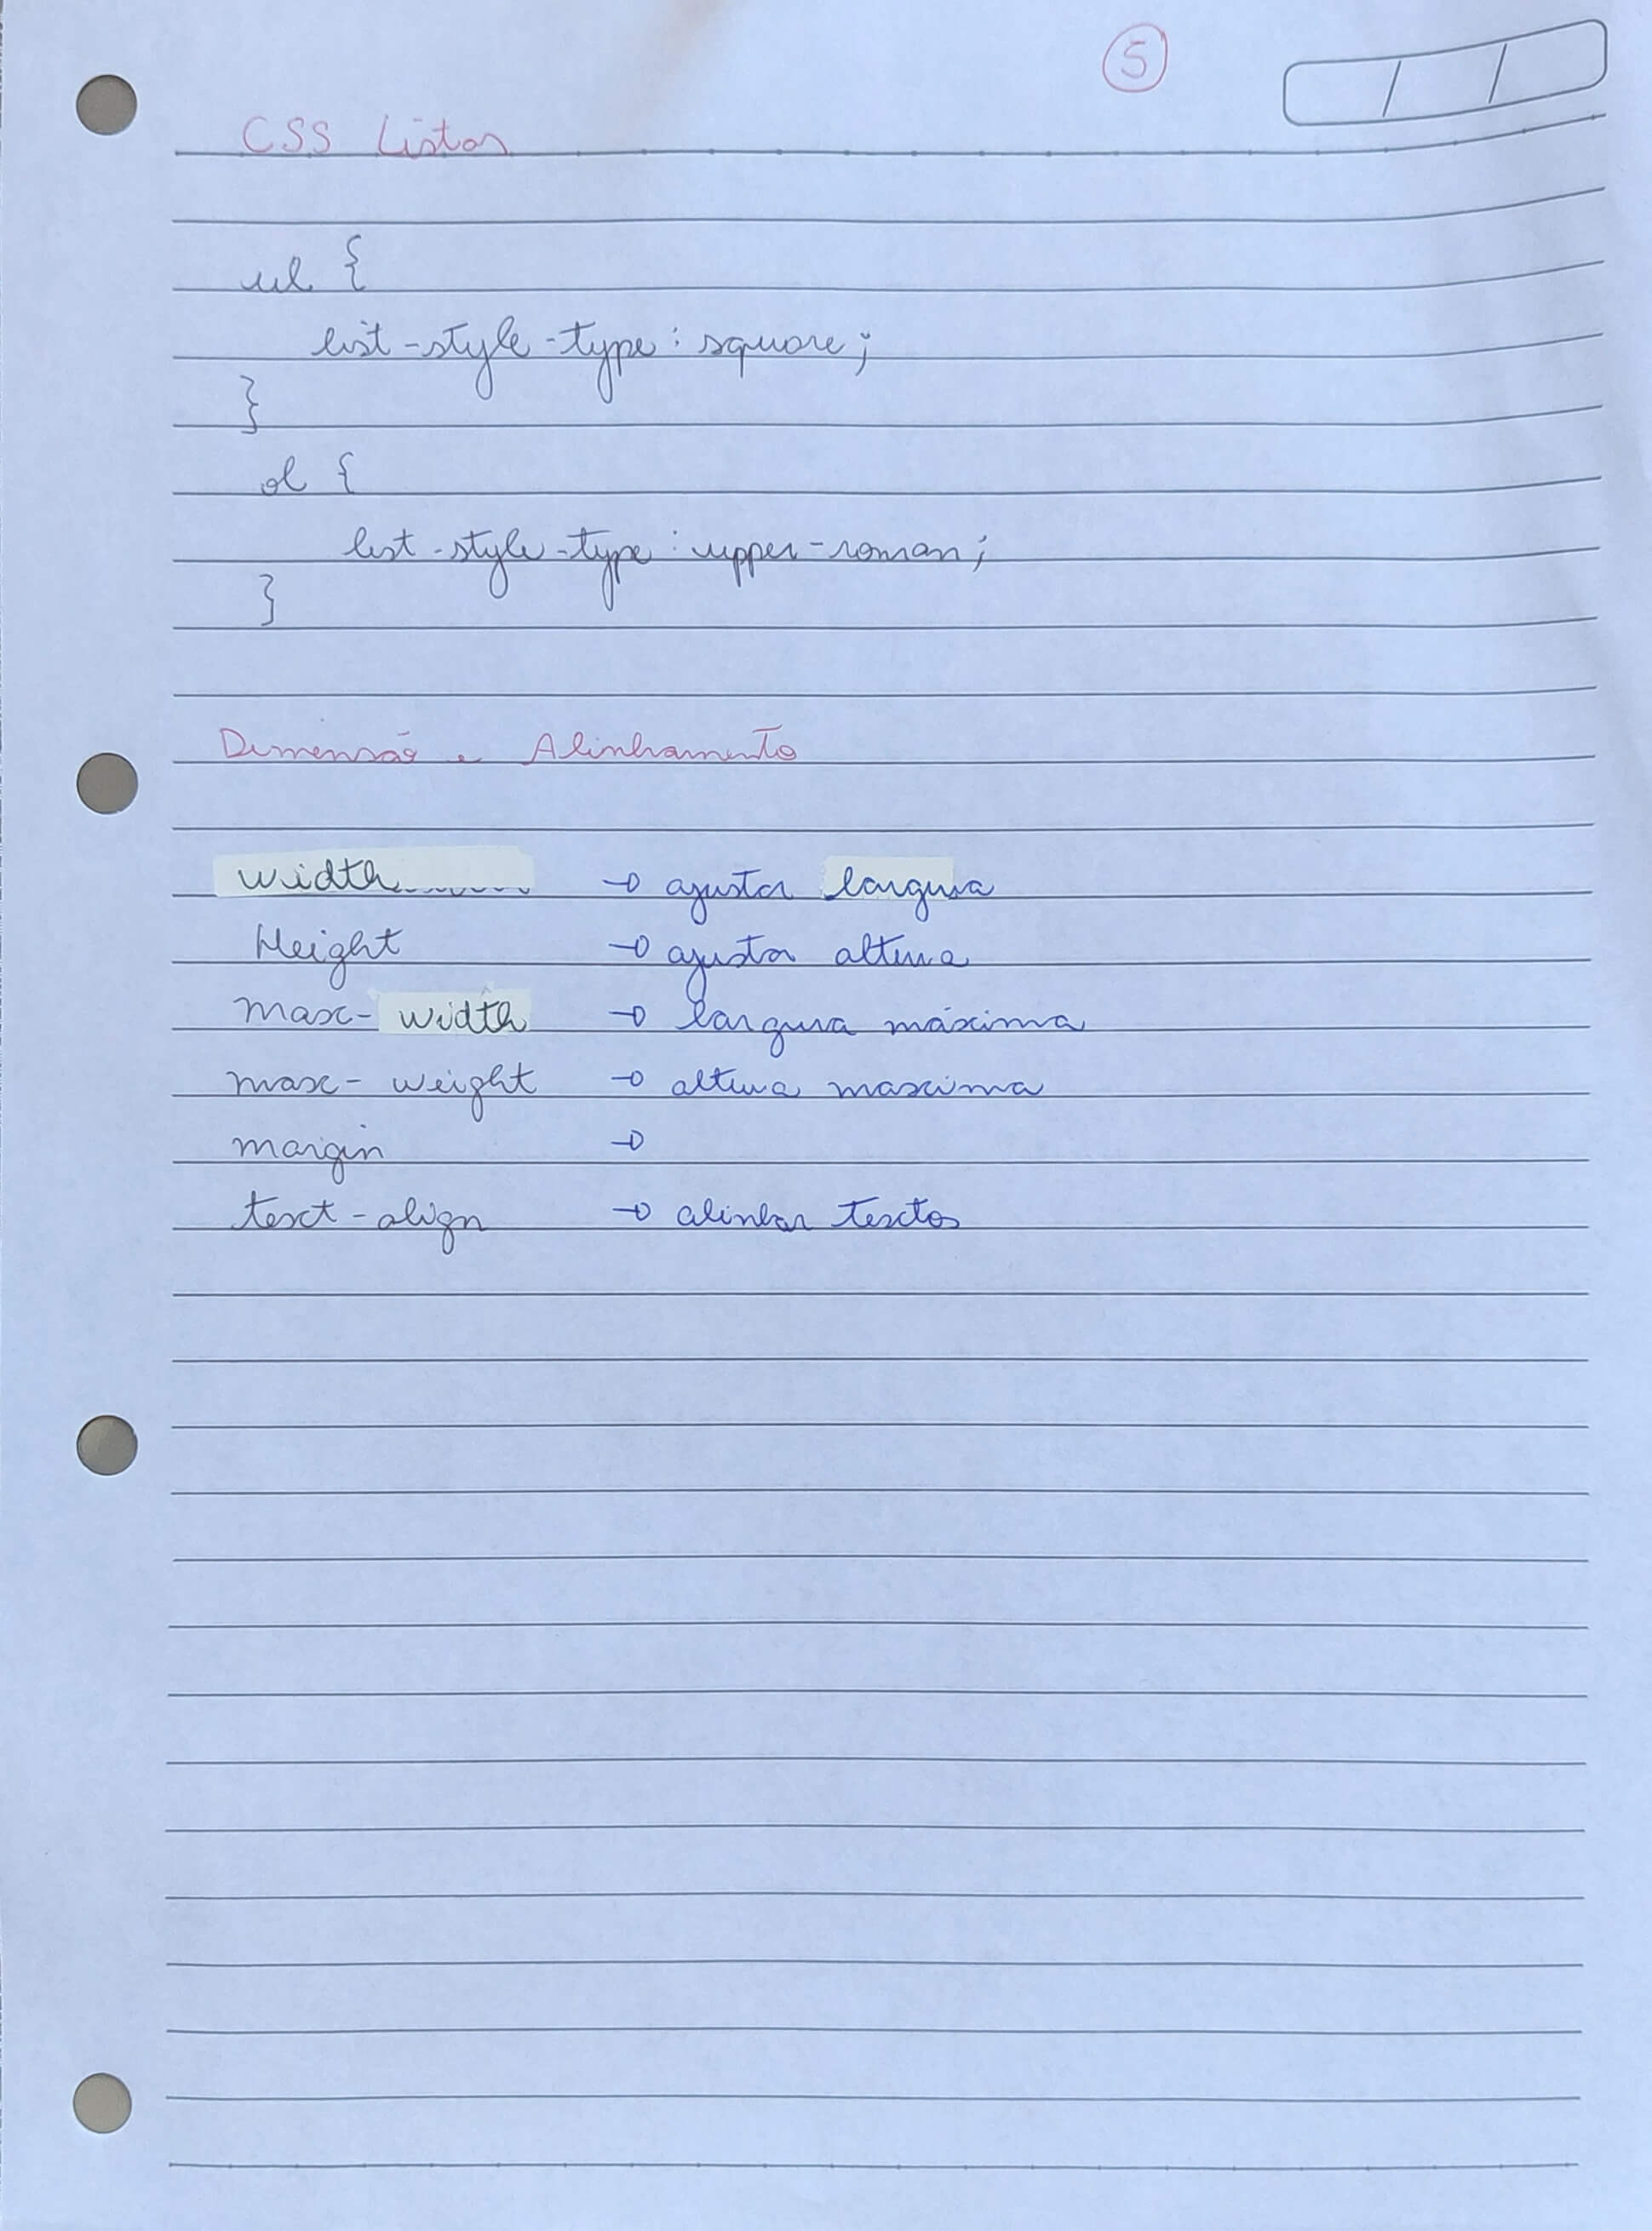 5
CSS Listas
ul {
list-style-type: square;
}
ol {
list-style-type: upper-roman;
}
Dimensão e Alinhamento
width → ajustar largura
Height → ajustar altura
max-width → largura máxima
max-weight → altura maxima
margin →
text-align → alinhar textos